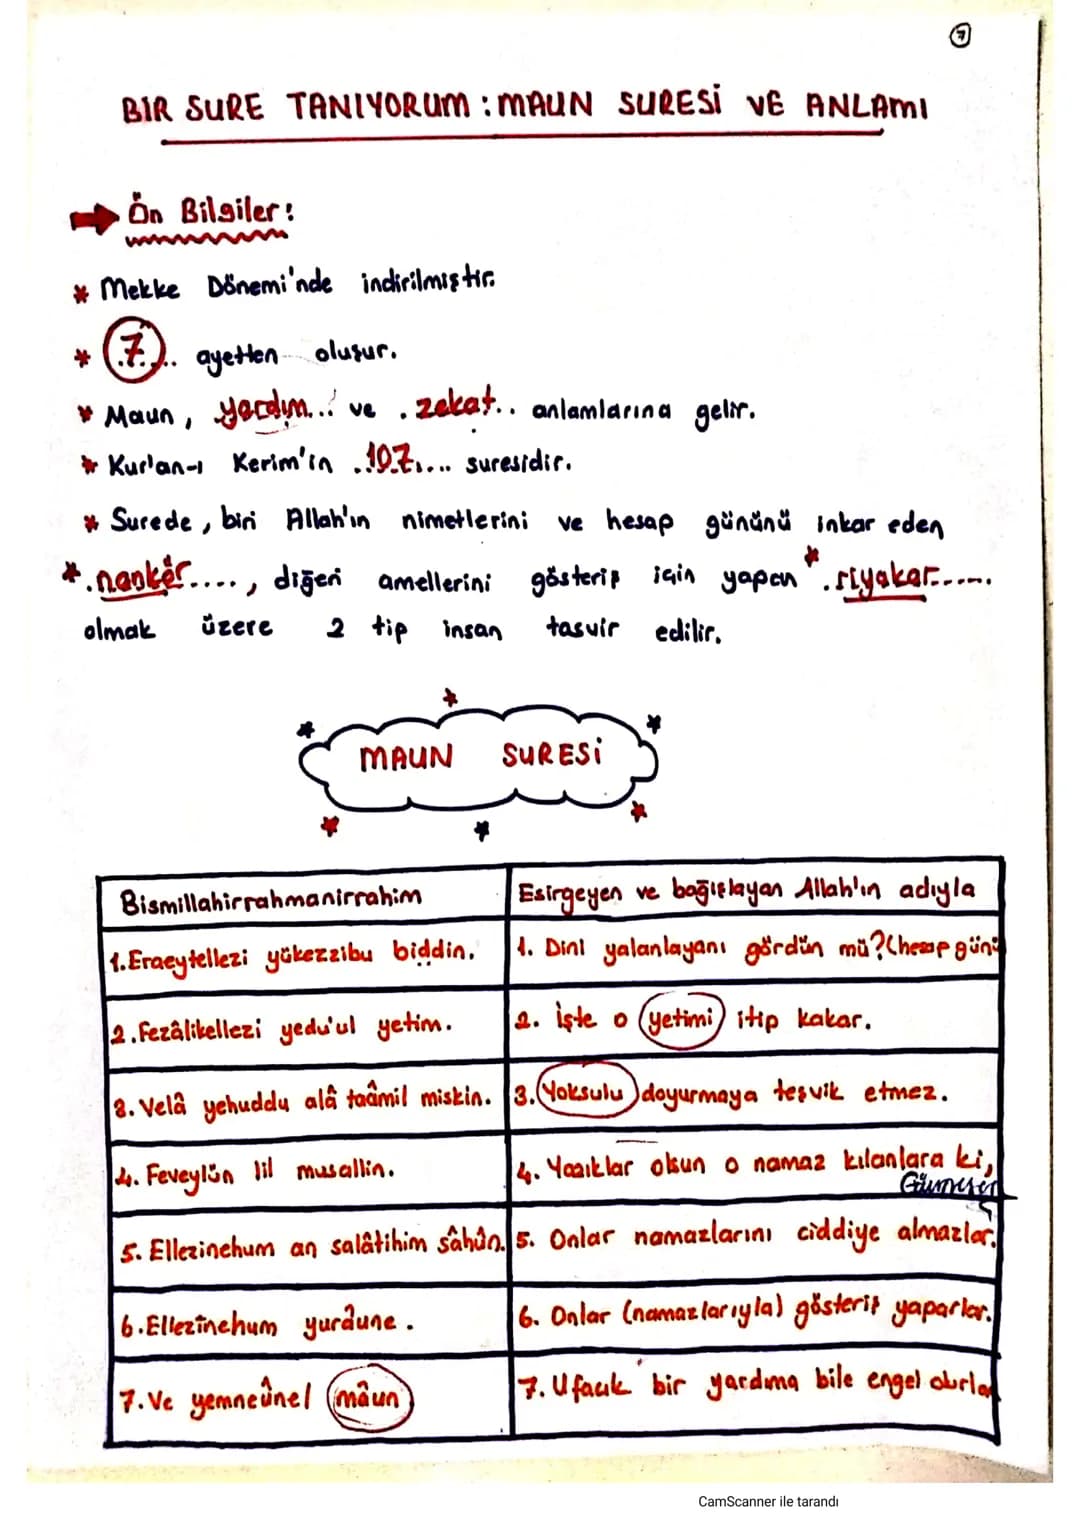 7
BIR SURE TANIYORUM : MAUN SURESİ VE ANLAMI
Ön Bilgiler:
* Mekke Dönemi'nde indirilmiştir.
* .7... ayetten oluşur.
* Maun, yardım... ve .zekat.. anlamlarına gelir.
* Kur'an-ı Kerim'in ..107.... suresidir.
* Surede, biri Allah'ın nimetlerini ve hesap gününü inkar eden
* .nankör...., diğeri amellerini gösteriş için yapan * .riyakar.....
olmak üzere 2 tip insan tasvir edilir.
MAUN SURESİ
Bismillahirrahmanirrahim
Esirgeyen ve bağışlayan Allah'ın adıyla
1. Eraeytellezi yükezzibu biddin.
1. Dini yalanlayanı gördün mü? (hesap günü
2. Fezâlikellezi yedu'ul yetim.
2. İşte o yetimi itip kakar.
3. Velâ yehuddu alâ taâmil miskin.
3. Yoksulu doyurmaya teşvik etmez.
4. Feveylün lil musallin.
4. Yazıklar olsun o namaz kılanlara ki,
5. Ellezinehum an salâtihim sâhûn.
5. Onlar namazlarını ciddiye almazlar.
6. Ellezînehum yurâune.
6. Onlar (namazlarıyla) gösteriş yaparlar.
7. Ve yemneûnel mâun
7. Ufacık bir yardıma bile engel olurlar
CamScanner ile tarandı